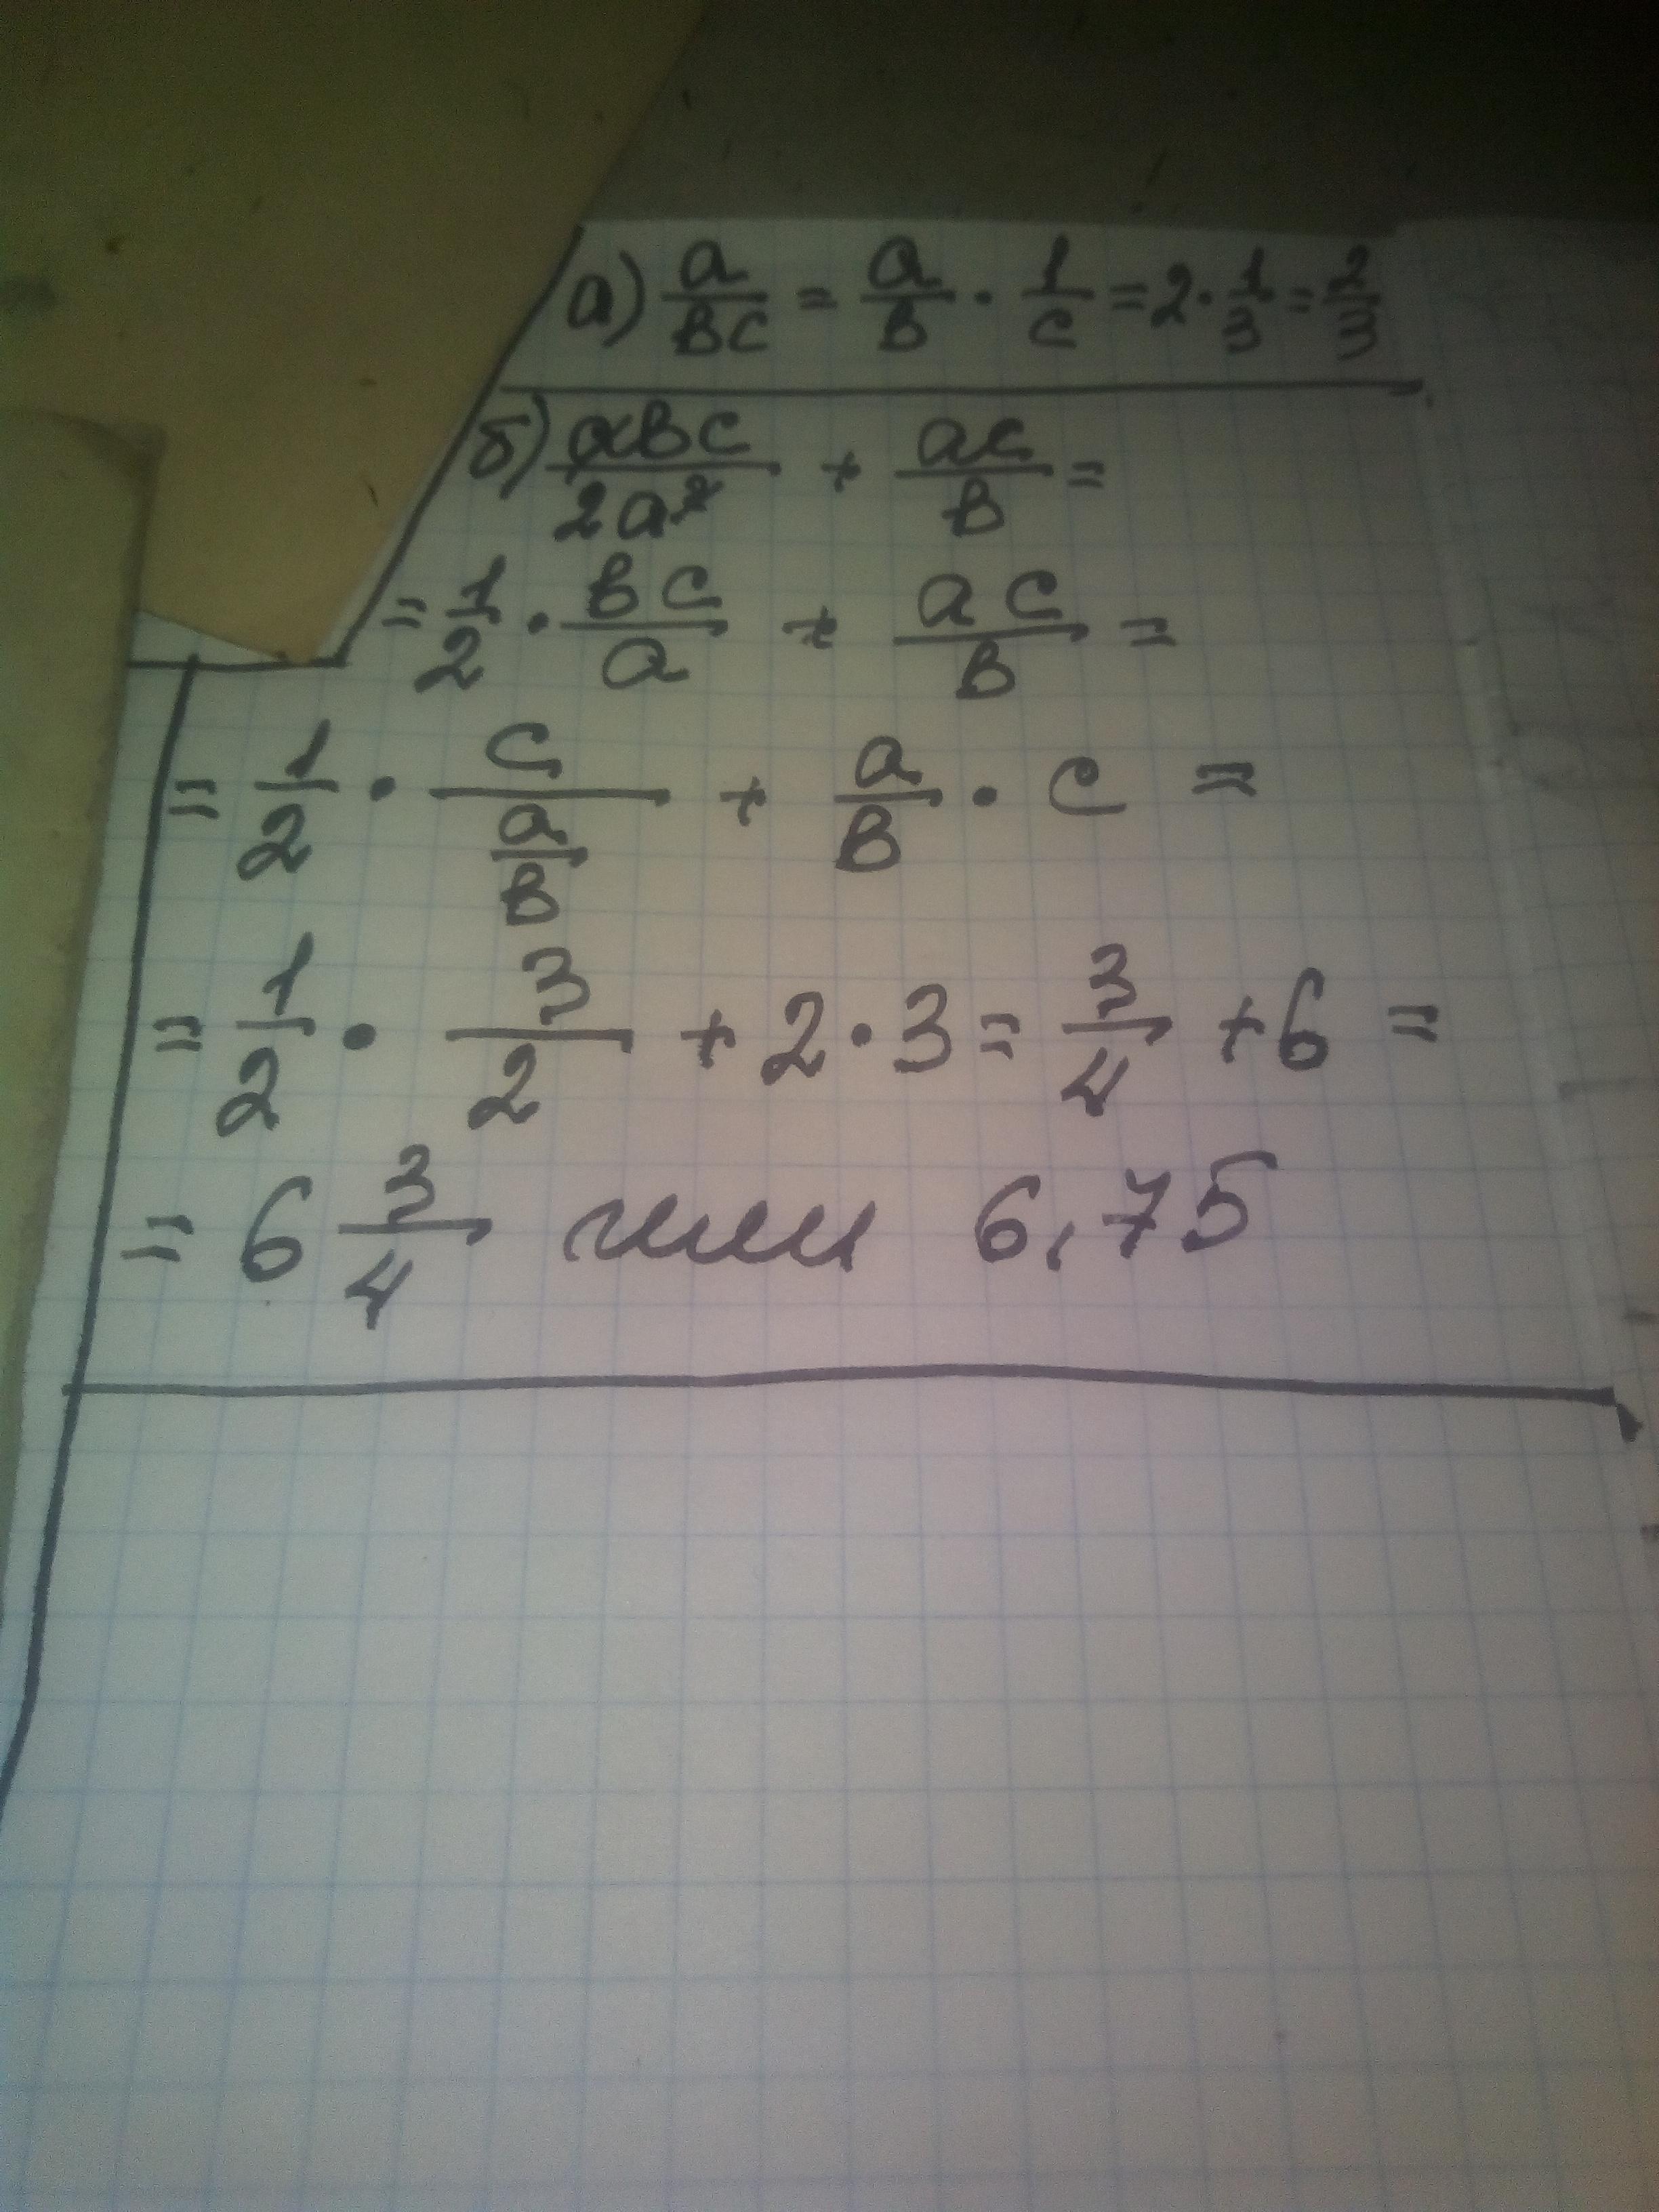 а) a/bc = a/b · 1/c = 2 · 1/3 = 2/3
б) abc/2a² + ac/b =
= 1/2 · bc/a + ac/b =
= 1/2 · c/(a/b) + a/b · c =
= 1/2 · 3/2 + 2 · 3 = 3/4 + 6 =
= 6 3/4 или 6,75